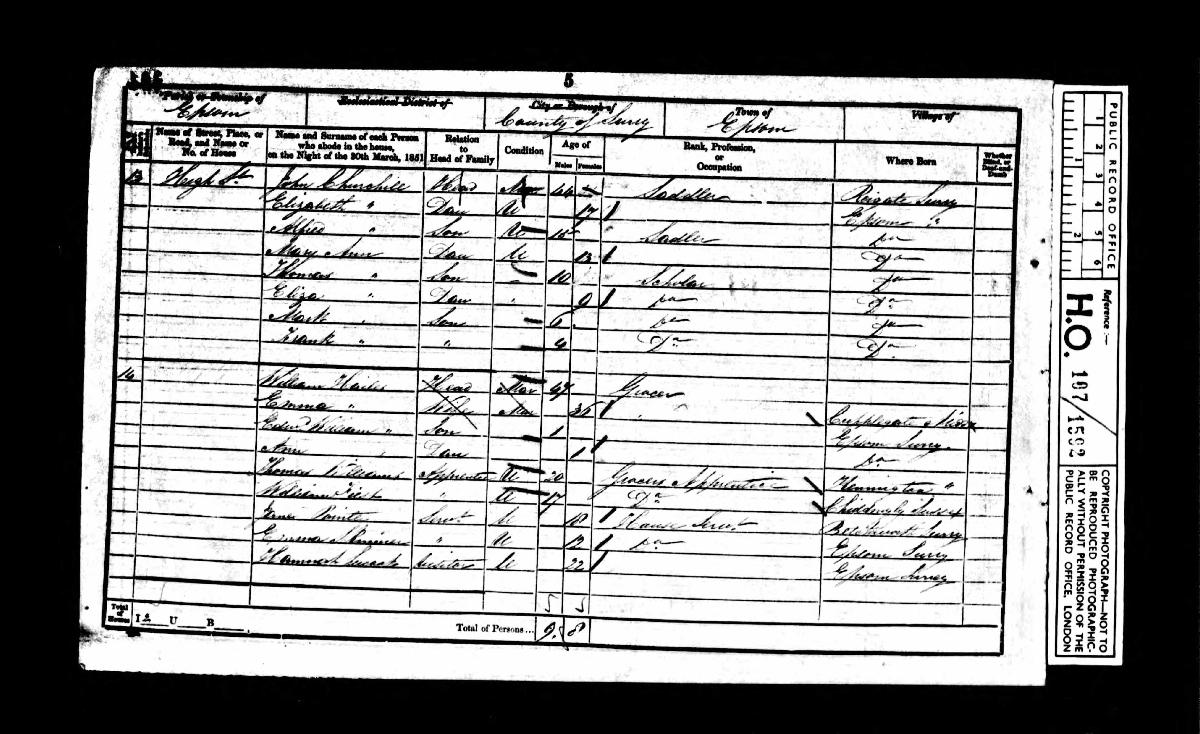 5
Parish or Township of Ecclesiastical District of City or Borough of Town of Village of
Epsom County of Surry Epsom
Name of Street, Place, or Road, and Name or No. of House Name and Surname of each Person who abode in the house, on the Night of the 30th March, 1851 Relation to Head of Family Condition Age of Males Females Rank, Profession, or Occupation Where Born Whether Blind, or Deaf-and-Dumb
13 High St. John Churchill Head 44 Saddler Reigate Surry
Elizabeth " Dau U 17 Epsom "
Alfred " Son U 15 Sadler Do
Mary Ann Dau U 13 Do
Thomas " Son 10 Scholar Do
Eliza " Dau 9 Do Do
Mark " Son 6 Do Do
Frank " " 4 Do Do
14 William Head Mar 47 Grocer
Emma " Wife Mar 36
William " Son 1 Epsom Surry
Ann Dau 1 Do
Thomas Williams Apprentice U 20 Grocers Apprentice Kennington "
William " U 17 Do Sussex
Servt U 18 House Servt Surry
Emma " U 12 Do Epsom Surry
Hannah visitor U 22 Epsom Surrey
5 5
Total of Houses I 2 U B Total of Persons... 9 8
PUBLIC RECORD OFFICE
1 2 3 4 5 6
1 2
Reference:—
H.O. 107/1592
COPYRIGHT PHOTOGRAPH—NOT TO BE REPRODUCED PHOTOGRAPHICALLY WITHOUT PERMISSION OF THE PUBLIC RECORD OFFICE, LONDON